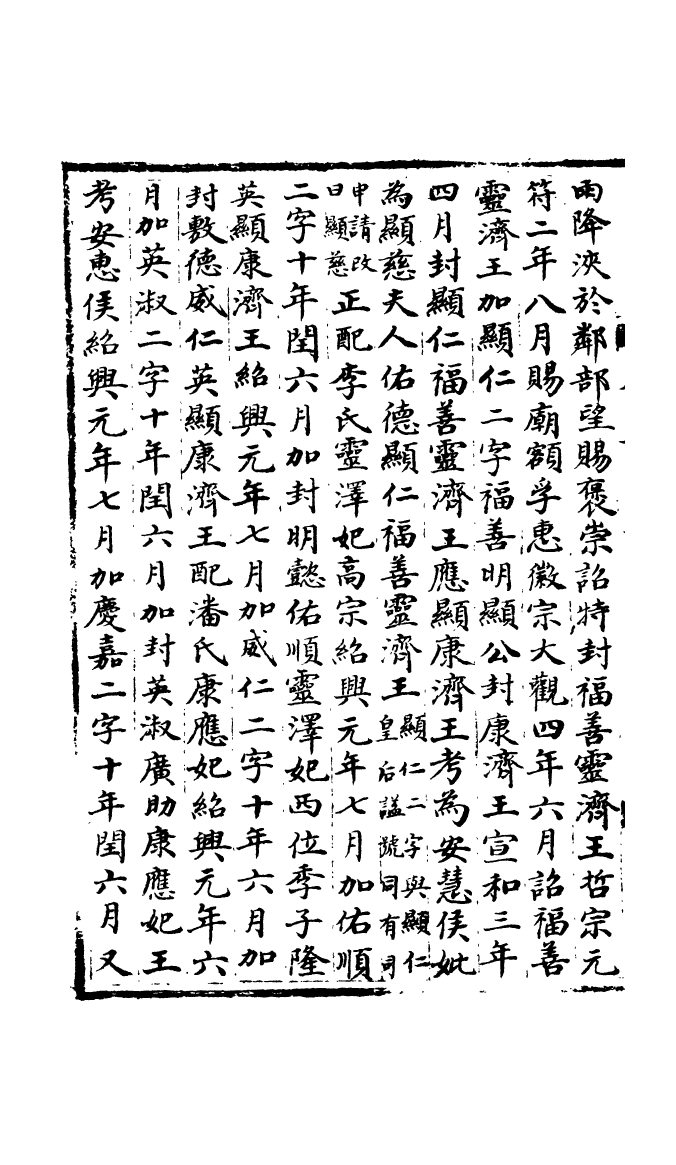 雨降浹於鄰部望賜褒崇詔特封福善靈濟王哲宗元
符二年八月賜廟額孚惠徽宗大觀四年六月詔福善
靈濟王加顯仁二字福善明顯公封康濟王宣和三年
四月封顯仁福善靈濟王應顯康濟王考為安慧侯妣
為顯慈夫人佑德顯仁福善靈濟王顯仁二字與顯仁皇后謚號同有司
申請改曰顯慈正配李氏靈澤妃高宗紹興元年七月加佑順
二字十年閏六月加封明懿佑順靈澤妃西位季子隆
英顯康濟王紹興元年七月加威仁二字十年六月加
封敷德威仁英顯康濟王配潘氏康應妃紹興元年六
月加英淑二字十年閏六月加封英淑廣助康應妃王
考安惠侯紹興元年七月加慶嘉二字十年閏六月又